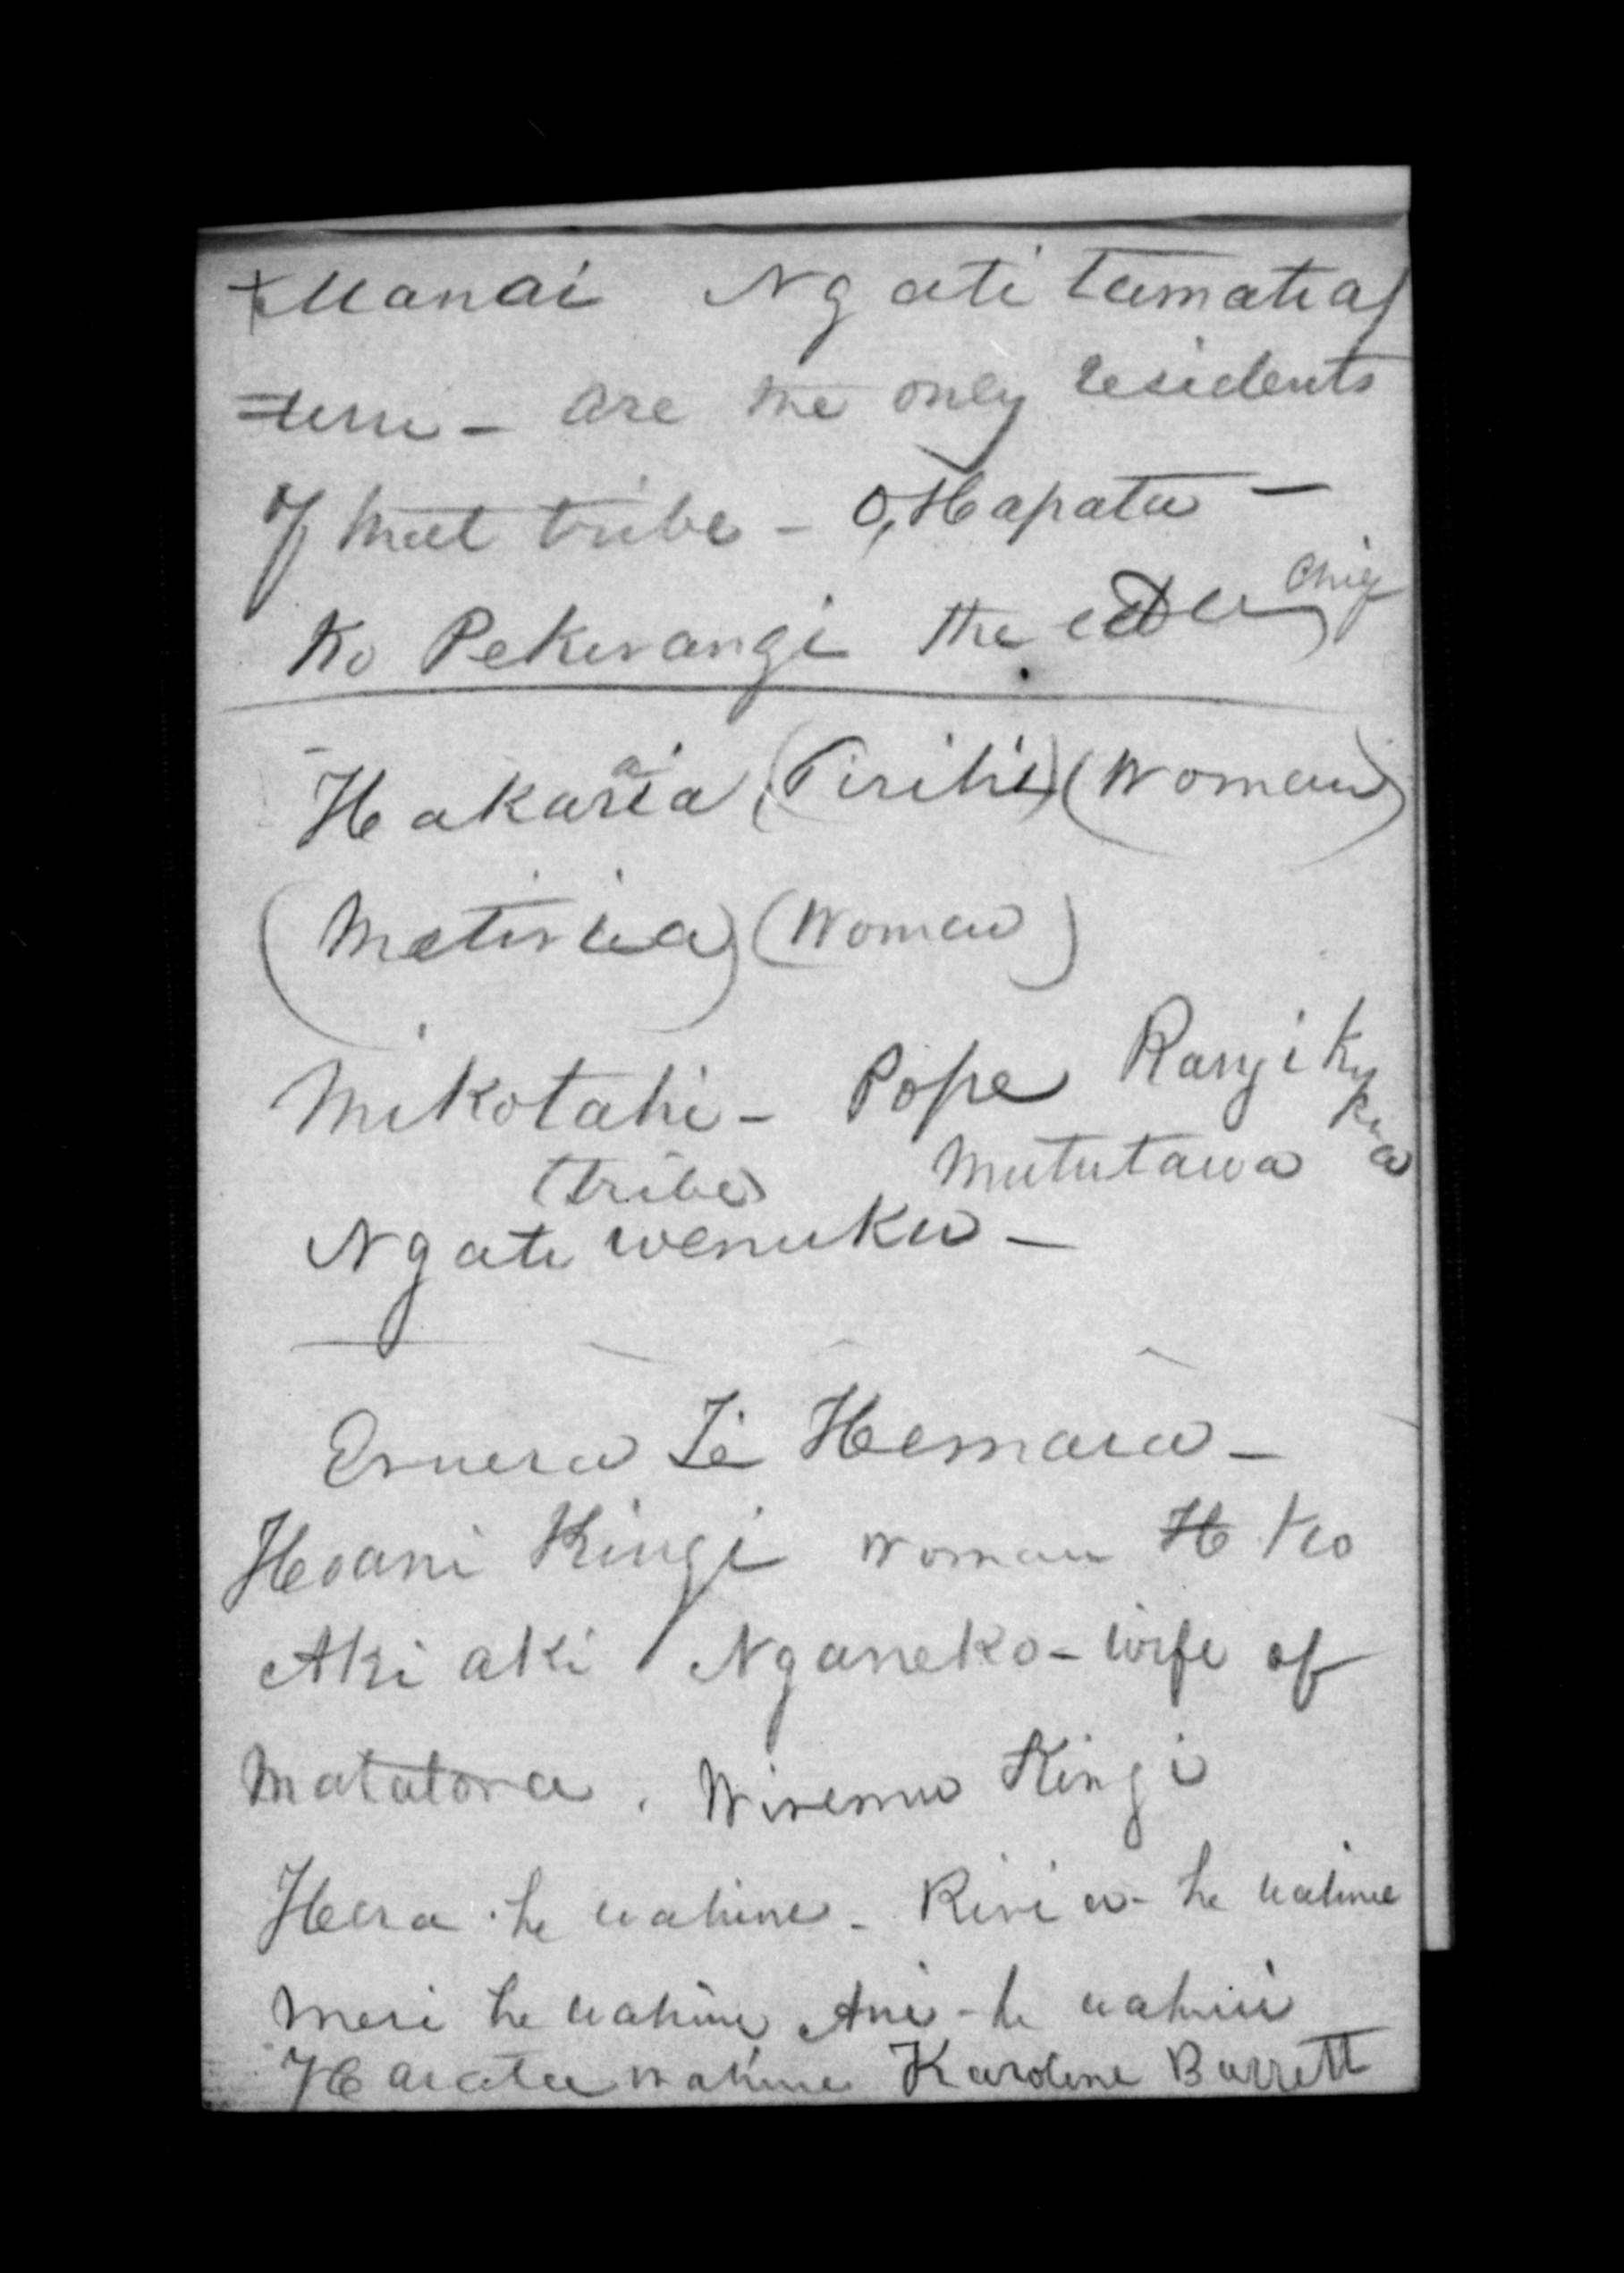 + Manai Ngati tamatea
=teru - are the only residents
of that tribe - O, Hapatu -
Ko Pekerangi the elder chief
Hakaraia (Tirihi) (Woman)
(Metiria) (Woman)
Mikotahi - Pope Rangi Ku
ku a
(tribe) Mututawa
Ngati wenuku -
Eruera Te Hemara -
Hoani Kingi woman H Ko
Aki aki Nganeko - wife of
Matatora . Wiremu Kingi
Hera . he wahine - Riria - he wahine
Meri he wahine Ani - he wahine
Harata wahine Karoline Barrett